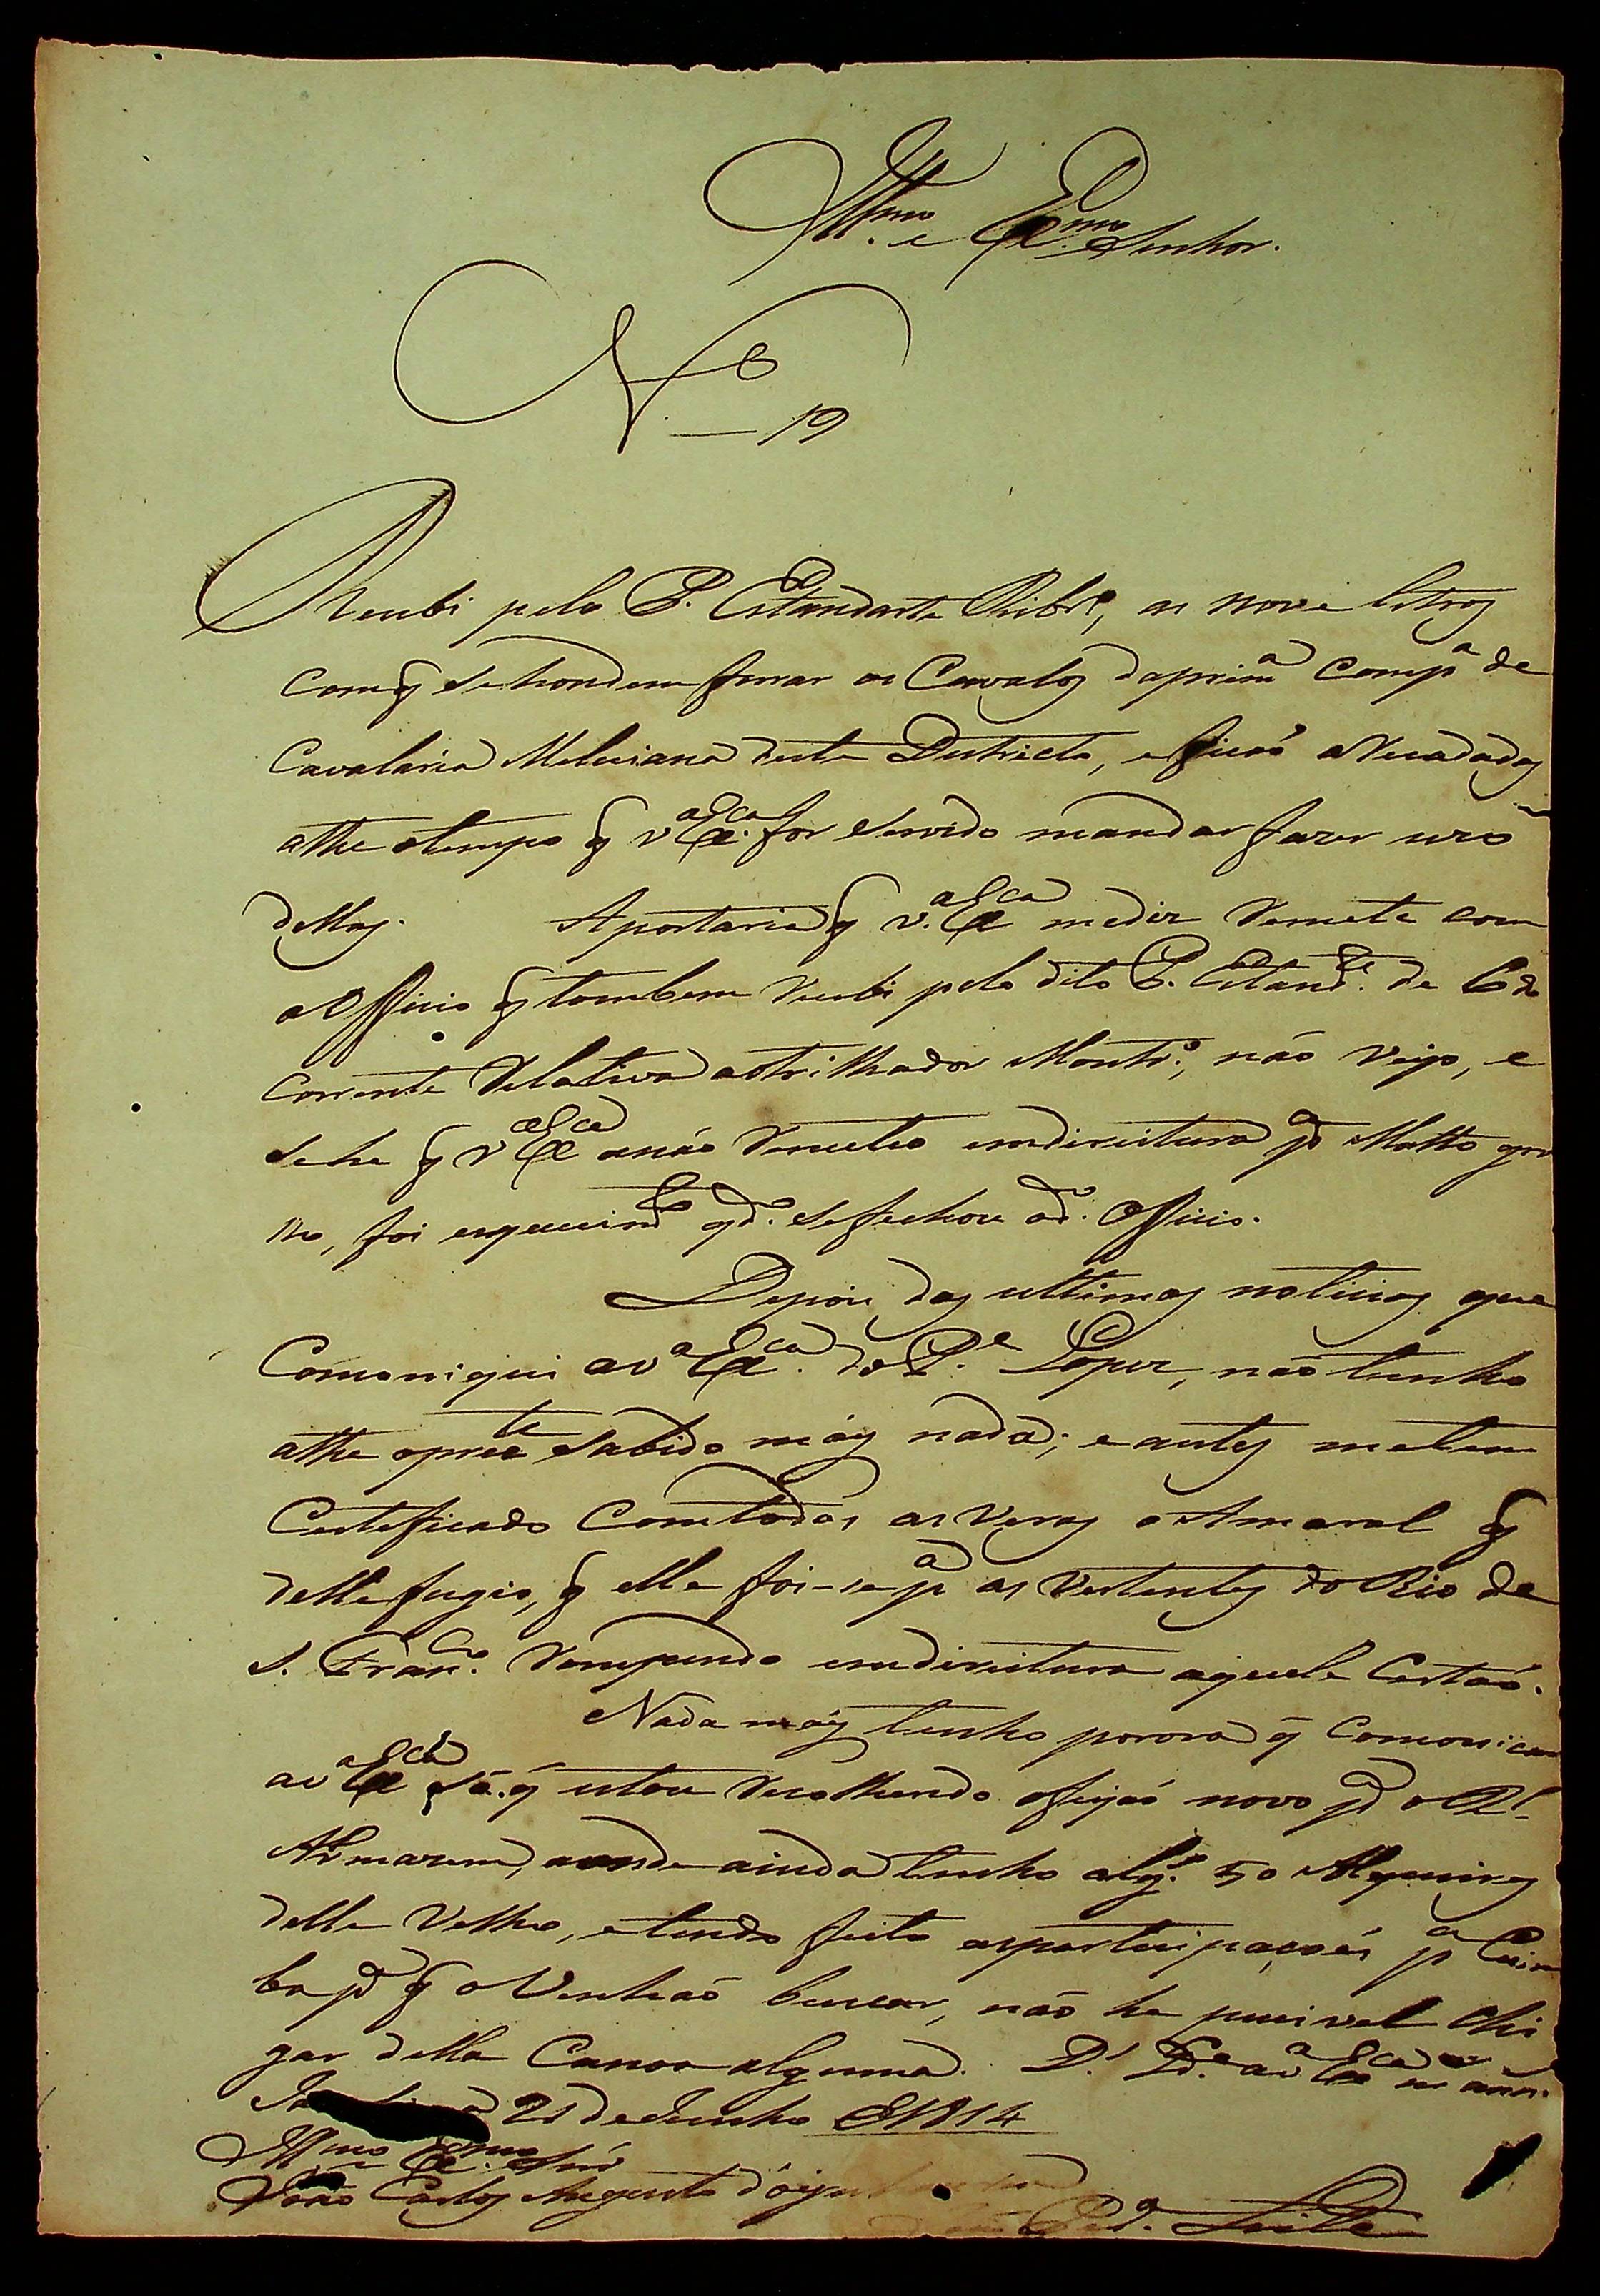 Illmo. e Exmo. Senhor.
No. — 19
Recebi pelo P. Estandarte Ribro, as nove letras
com q̃ se handem ferrar os Cavalos da prima Compa de
Cavalaria Meliciana deste Destricto, e ficaõ arecadadas
athe o tempo q̃ va Exca. for servido mandar fazer uzo
dellas. A portaria q̃ v.a Exca me diz remete com
o Officio q̃ tambem recebi pelo dito P. Estande. de 6 do
corrente relativa ao trilhador Montro., não veijo, e
se he q̃ va Exca a não remeteo em direitura pa Matto gro
sso, foi esquecimto qdo. se fechou o do. Officio.
Depois das ultimas noticias que
Comoniquei a va Exca. do Pe. Lopez, não tenho
athe o preze sabido máis nada; e antes me tem
Certeficado Com todas as veras o Amaral q̃
delle fugio, q̃ elle foi-se pa as vertentes do Rio de
S. Franco. rompendo em direitura aquele Certaõ.
Nada máis tenho por ora q̃ Comonicar
a va Exca só q̃ estou recolhendo o feijaõ novo pa o Rl.
Armazem, aonde ainda tenho algs. 50 Alqueires
delle velho, e tendo feito as partecipaçoẽs pa Cuia
ba pa q̃ o venhaõ buscar, não he pucivel che
gar della Canoa alguma. Ds. Gde. a va Exca ms annos.
21 de Junho de 1814
Illmo e Exmo. Snr.
João Carlos Augusto d'Oeyn
Leite